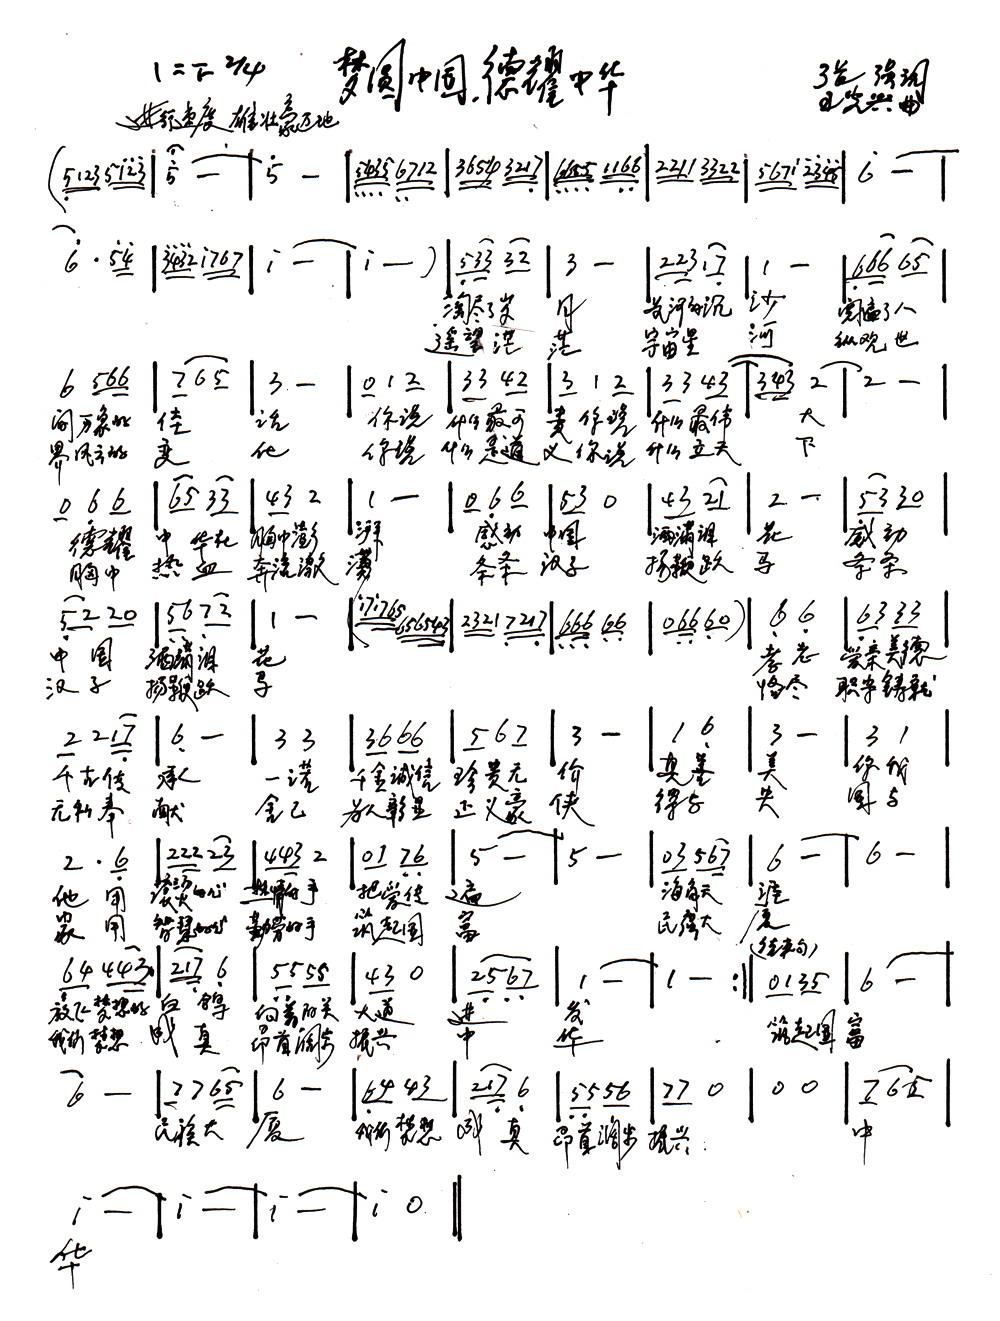 1=F 2/4 梦圆中国、德耀中华
进行速度 雄壮豪迈地
(5123 5123 | 5 — | 5 — | 5435 6712 | 3654 3217 | 6655 1166 | 2211 3322 | 5671 2345 | 6 — |
6 · 54 | 3432 1767 | i — | i — ) | 533 32 | 3 — | 223 17 | 1 — | 666 65 |
淘尽了岁 月 长河的沉 沙 阅尽了人
遥望茫 茫 宇宙星 河 纵观世
6 566 | 7 65 | 3 — | 0 12 | 33 42 | 3 12 | 33 43 | 343 2 | 2 — |
间 万象的 佳 话 你说 什么最可 贵 你说 什么最伟 大
界 的 变 化 你说 什么是道 义 你说 什么立天 下
0 6 6 | 65 33 | 43 2 | 1 — | 0 6 6 | 53 0 | 43 21 | 2 — | 53 30 |
德耀 中 华在 胸中澎 湃 感动 中国 洒满泪 花 感动
胸中 热 血 奔流激 荡 条条 汉子 扬鞭跃 马 条条
52 20 | 56 72 | 1 — | (171765 656543 | 2321 7217 | 666 66 | 066 60) | 6 6 | 63 33 |
中 国 洒满泪 花 孝老 爱亲美德
汉 子 扬鞭跃 马 恪尽 职守铸就
2 217 | 6 — | 3 3 | 36 66 | 5 67 | 3 — | 1 6 | 3 — | 3 1 |
千古传 承 一诺 千金诚信 珍贵无 价 真善 美 你我
无私奉 献 舍己 为人彰显 正义豪 侠 得与 失 国与
2 · 6 | 222 23 | 443 2 | 01 76 | 5 — | 5 — | 03 567 | 6 — | 6 — |
他 用 的心 的手 把爱传 遍 海角天 涯
家 用 智慧的心 勤劳的手 筑起国 富 民族大 厦
(结束句)
64 443 | 217 6 | 55 55 | 43 0 | 25 67 | 1 — | 1 — :‖ 01 35 | 6 — |
放飞梦想的 白 鸽 向着阳关 大道 进 发 筑起国 富
我们梦想 成 真 昂首阔步 振兴 中 华
6 — | 77 65 | 6 — | 64 43 | 217 6 | 55 56 | 77 0 | 0 0 | 7 65 |
民族大 厦 我们梦想 成 真 昂首阔步 振兴 中
i — | i — | i — | i 0 ‖
华